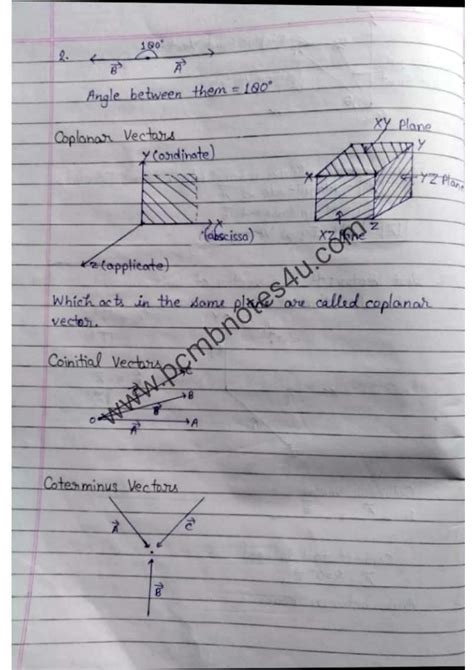 2.
180°
B A
Angle between them = 180°
Coplanar Vectors
Y (ordinate)
X
(abscissa)
Z (applicate)
XY Plane
Y
X
YZ Plane
Z
XZ Plane
Which acts in the same plane are called coplanar
vector.
Coinitial Vectors
C
B
B
O
A
A
Coterminus Vectors
A
C
B
www.pcmbnotes4u.com